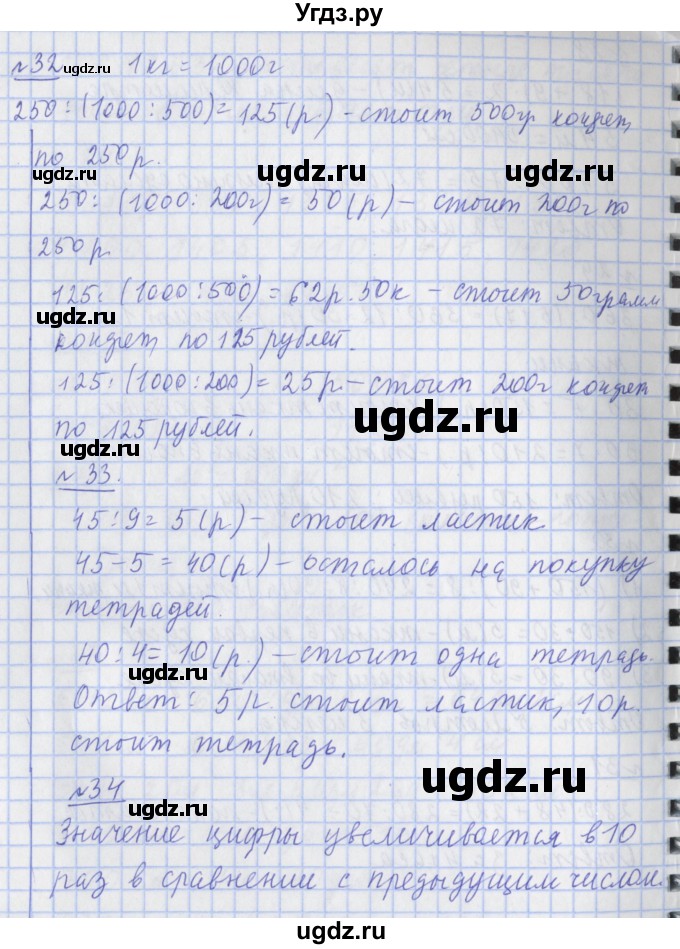 Угдз.ру
№32 ugdz.ru 1 кг = 1000г
250:(1000:500)=125(р.) - стоит 500гр конфет,
по 250р.
ugdz.ru ugdz.ru ugdz.ru
250: (1000:200г) = 50(р) - стоит 200г по
250р
125: (1000:500) = 62р.50к - стоит 50грамм
ugdz.ru
конфет, по 125 рублей.
125: (1000:200)= 25р. - стоит 200г конфет
ugdz.ru
по 125 рублей.
ugdz.ru
№33.
45:9=5(р) - стоит ластик
45-5=40(р) - осталось на покупку
тетрадей.
40:4=10(р.) - стоит одна тетрадь.
ugdz.ru ugdz.ru
Ответ: 5р. стоит ластик, 10р.
стоит тетрадь.
ugdz.ru
№34
ugdz.ru
Значение цифры увеличивается в 10
раз в сравнении с предыдущим числом.
ugdz.ru ugdz.ru